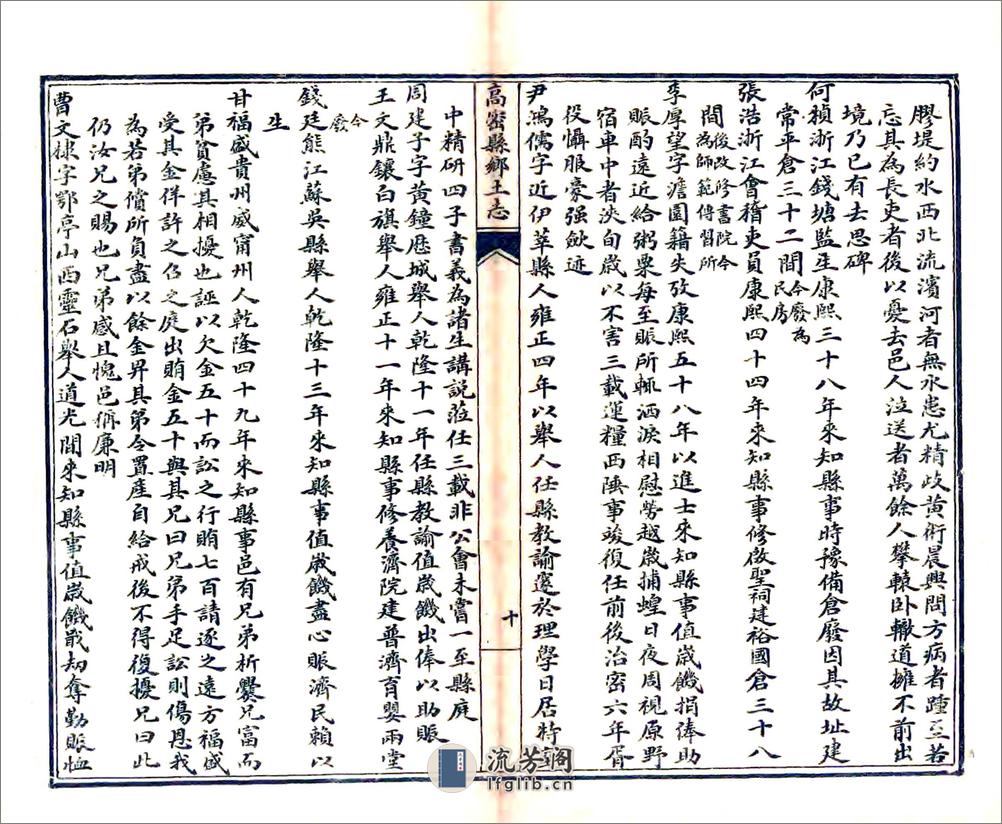 膠堤約水西北流濱河者無水患尤精歧黃術晨興問方病者踵至若
忘其為長吏者後以憂去邑人泣送者萬餘人攀轅卧轍道擁不前出
境乃已有去思碑
何楨浙江錢塘監生康熙三十八年來知縣事時豫備倉廢因其故址建
常平倉三十二間今廢為民房
張浩浙江會稽吏員康熙四十四年來知縣事修啟聖祠建裕國倉三十八
間後改修書院今為師範傳習所
李厚望字澹園籍失攷康熙五十八年以進士來知縣事值歲饑捐俸助
賑酌遠近給粥粟每至賑所輒洒淚相慰勞越歲捕蝗日夜周視原野
宿車中者浹旬歲以不害三載運糧西陲事竣復任前後治密六年胥
役懾服豪强歛迹
尹鴻儒字近伊莘縣人雍正四年以舉人任縣教諭邃於理學日居特
高密縣鄉土志
十
中精研四子書義為諸生講說蒞任三載非公會未嘗一至縣庭
周建子字黃鐘歷城舉人乾隆十一年任縣教諭值歲饑出俸以助賑
王文鼎鑲白旗舉人雍正十一年來知縣事修養濟院建普濟育嬰兩堂
今廢
錢廷熊江蘇吳縣舉人乾隆十三年來知縣事值歲饑盡心賑濟民賴以
生
甘福盛貴州威甯州人乾隆四十九年來知縣事邑有兄弟析爨兄富而
弟貧慮其相擾也誣以欠金五十而訟之行賄七百請逐之遠方福盛
受其金佯許之召之庭出賄金五十與其兄曰兄弟手足訟則傷恩我
為若弟償所負盡以餘金畀其弟令置産自給戒後不得復擾兄曰此
仍汝兄之賜也兄弟感且愧邑稱廉明
曹文棣字鄂亭山西靈石舉人道光間來知縣事值歲饑戢劫奪勤賑恤
流芳閣
lfglib.cn